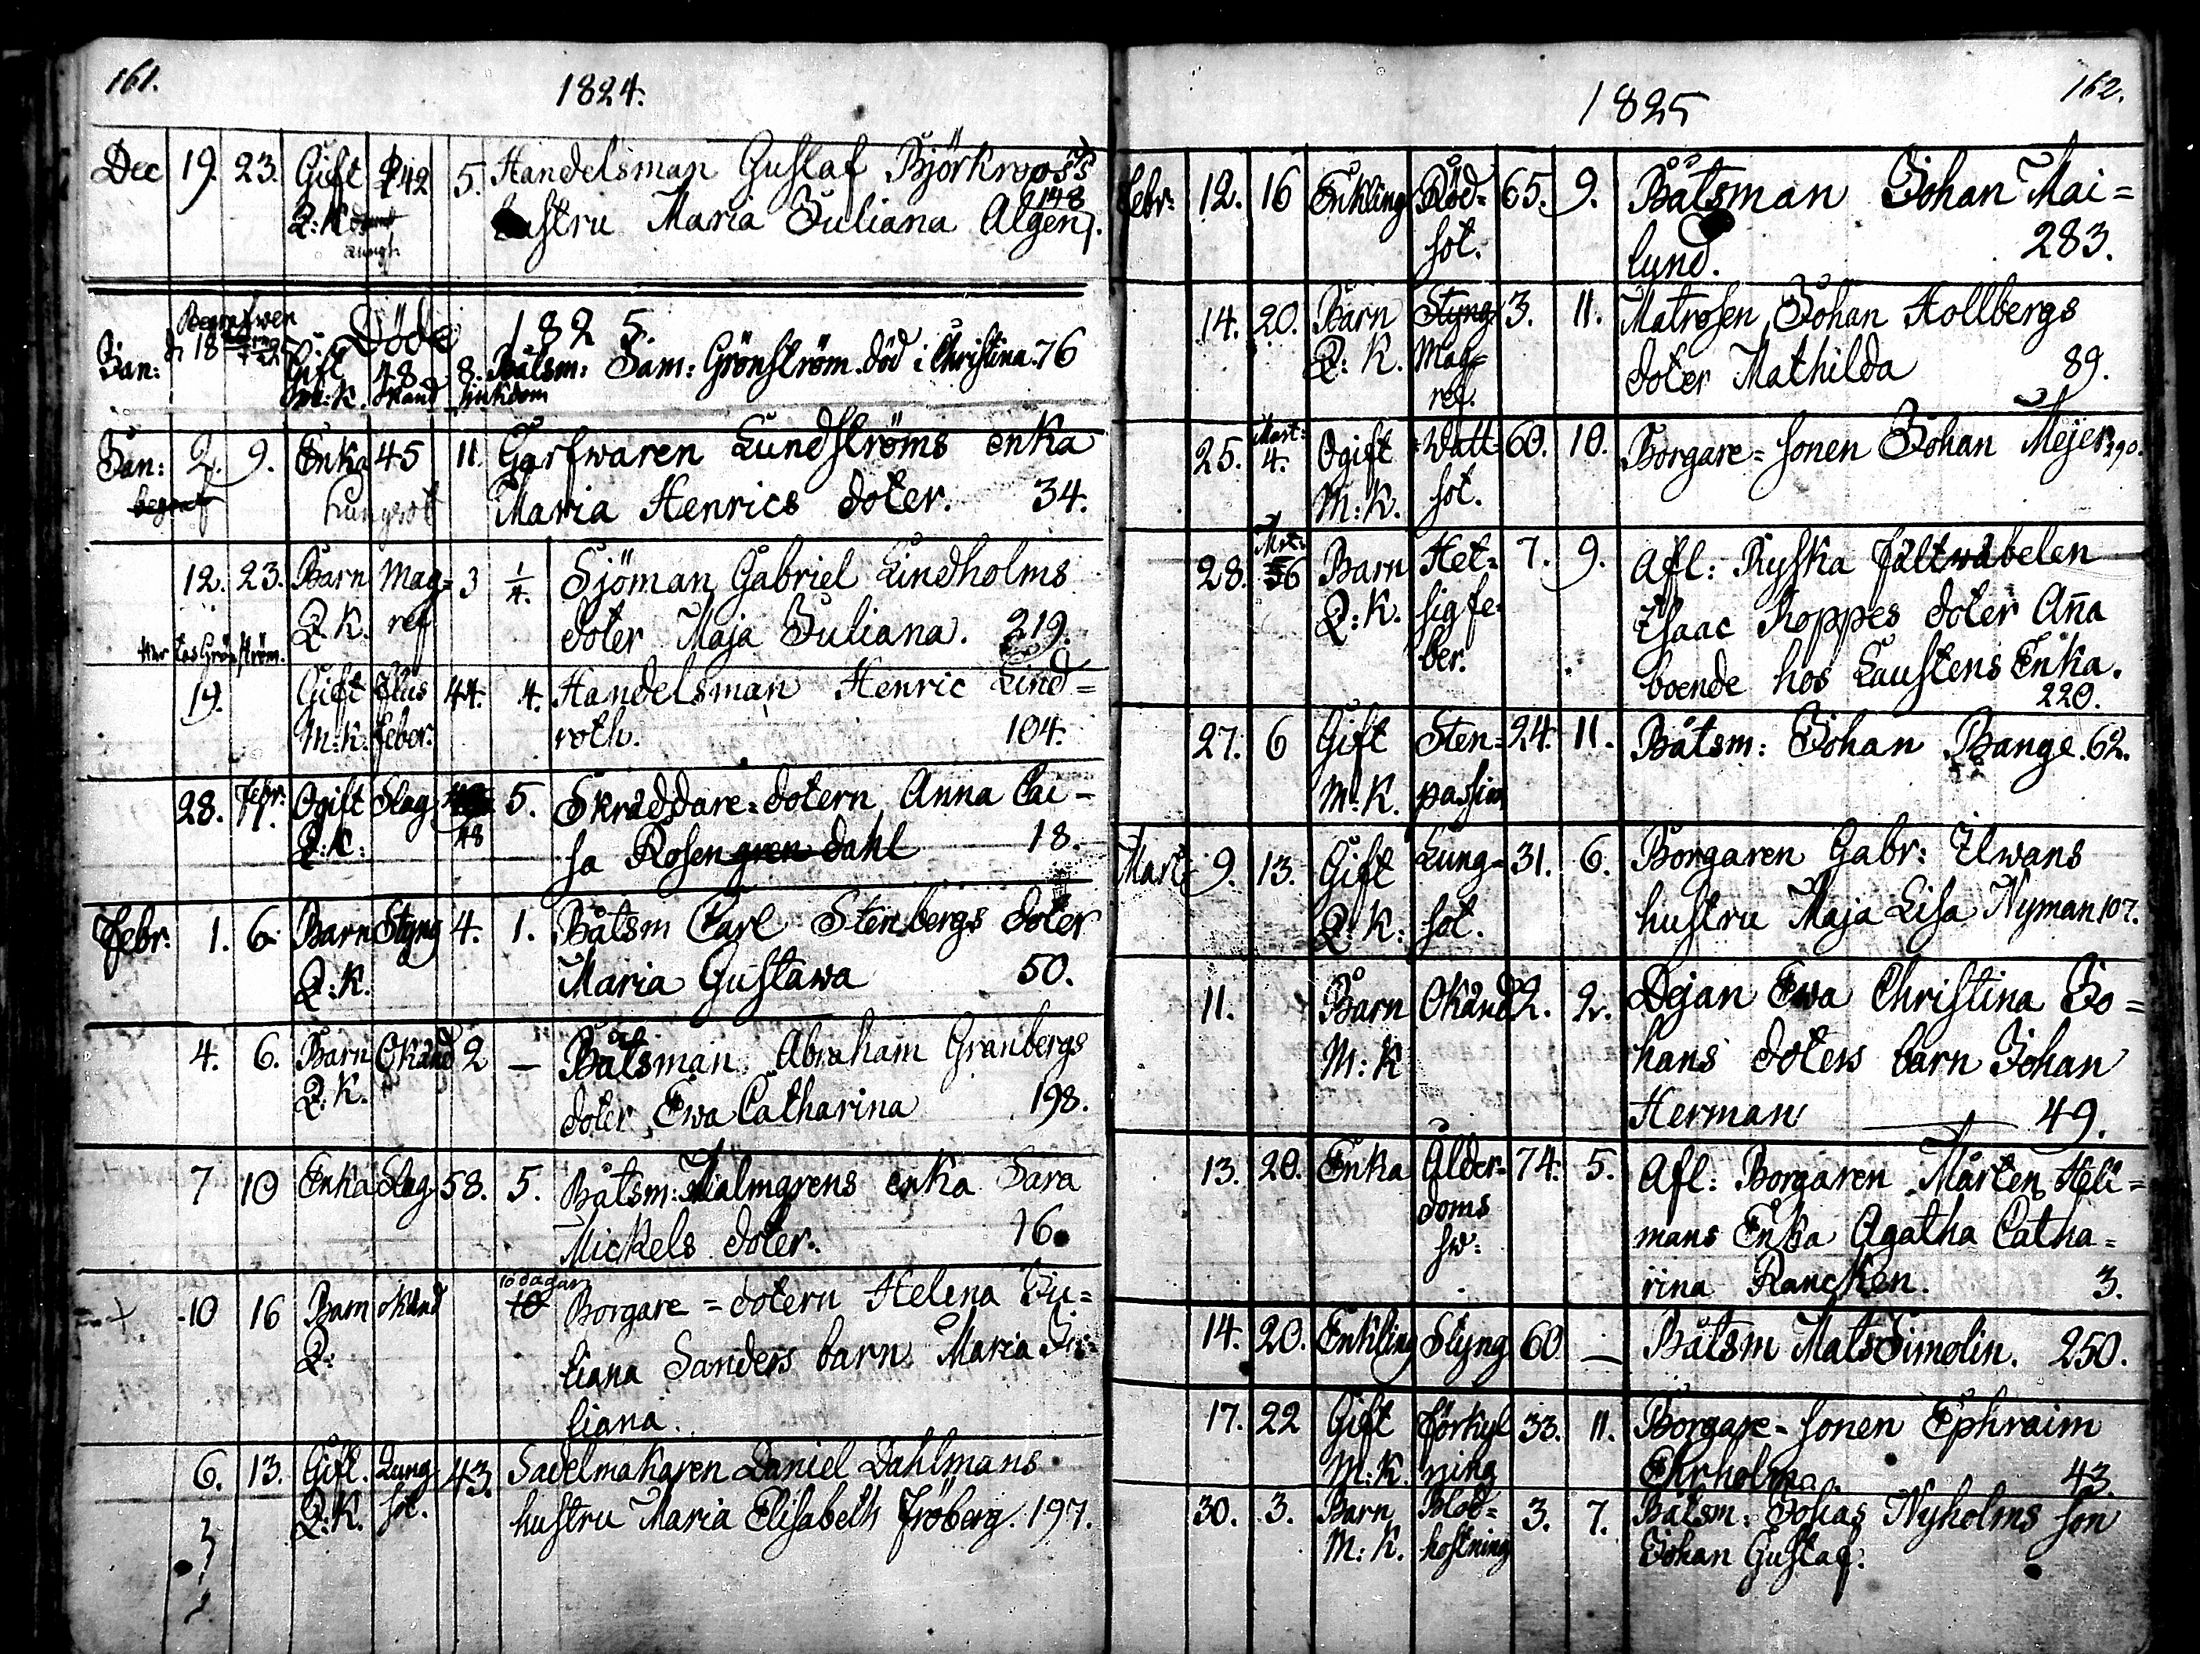 161.
1824.
Dec 19. 23. Gift 42 5. Handelsman Gustaf Björkroos's
Q: K hustru Maria Juliana Algen. 148
Begrafwen
Döde 1825.
Jan: d. 18 Gift 48 8. Båtsm: Sam: Grönström. död i Christina. 76
M: K. okänd sjukdom
Jan: 2. 9. Enka 45 11. Garfwaren Lundströms enka
begraf lungsot Maria Henrics doter. 34.
12. 23. Barn Mag= 3 1/4. Sjöman Gabriel Lindholms
Q. K. ref doter Maja Juliana. 219.
Grönström.
19. Gift Flus 44. 4. Handelsman Henric Lind=
M: K. feber. roth. 104.
28. Febr: 1. Ogift Slag 48 5. Skräddare=dotern Anna Cai=
Q: K: sa Rosengren dahl 18.
Febr: 1. 6. Barn Styng 4. 1. Båtsm Carl Stenbergs doter
Q: K. Maria Gustawa 50.
4. 6. Barn Okänd 2 — Båtsman Abraham Granbergs
Q: K. doter Ewa Catharina 198.
7 10 Enka Slag 58. 5. Båtsm: Malmgrens enka Sara
Mickels doter. 16.
10 dagar
10 16 Barn okänd 10 Borgare=dotern Helena Ju=
Q: liana Sanders barn Maria Ju=
liana.
6. 13. Gift. Lung 43. Sadelmakaren Daniel Dahlmans
Q: K. sot. hustru Maria Elisabeth Fröberg. 197.
1825
162.
Febr: 12. 16 Enkling Röd= 65. 9. Båtsman Johan Mai=
sot. lund. 283.
14. 20. Barn Styng 3. 11. Matrosen Johan Hollbergs
Q: K. Mag= doter Mathilda 89.
ref.
25. Mart: 4. Ogift Watt= 60. 10. Borgare=sonen Johan Mejer 290.
M: K. sot.
28. Mrt: 6 Barn Het= 7. 9. Afl: Ryska fältwäbelen
Q: K. sig fe= Isaac Koppes doter Aña
ber. boende hos Laustens Enka.
220.
27. 6 Gift Sten= 24. 11. Båtsm: Johan Bange. 62.
M: K. passion
Mart: 9. 13. Gift Lung= 31. 6. Borgaren Gabr: Ilwans
Q: K: sot. hustru Maja Lisa Nyman 107.
11. Barn Okänd 2. 2. Dejan Ewa Christina Jo=
M: K hans doters barn Johan
Herman — 49.
13. 20. Enka Ålder= 74. 5. Afl: Borgaren Mårten Heli=
doms mans Enka Agatha Catha=
sw: rina Rancken. 3.
14. 20. Enkling Styng 60 — Båtsm Mats Simolin. 250.
17. 22 Gift Förkyl 33. 11. Borgare=sonen Ephraim
M: K. ning Ehrholm. 43.
30. 3. Barn Blod= 3. 7. Båtsm: Josias Nyholms son
M: K. hostning Johan Gustaf.